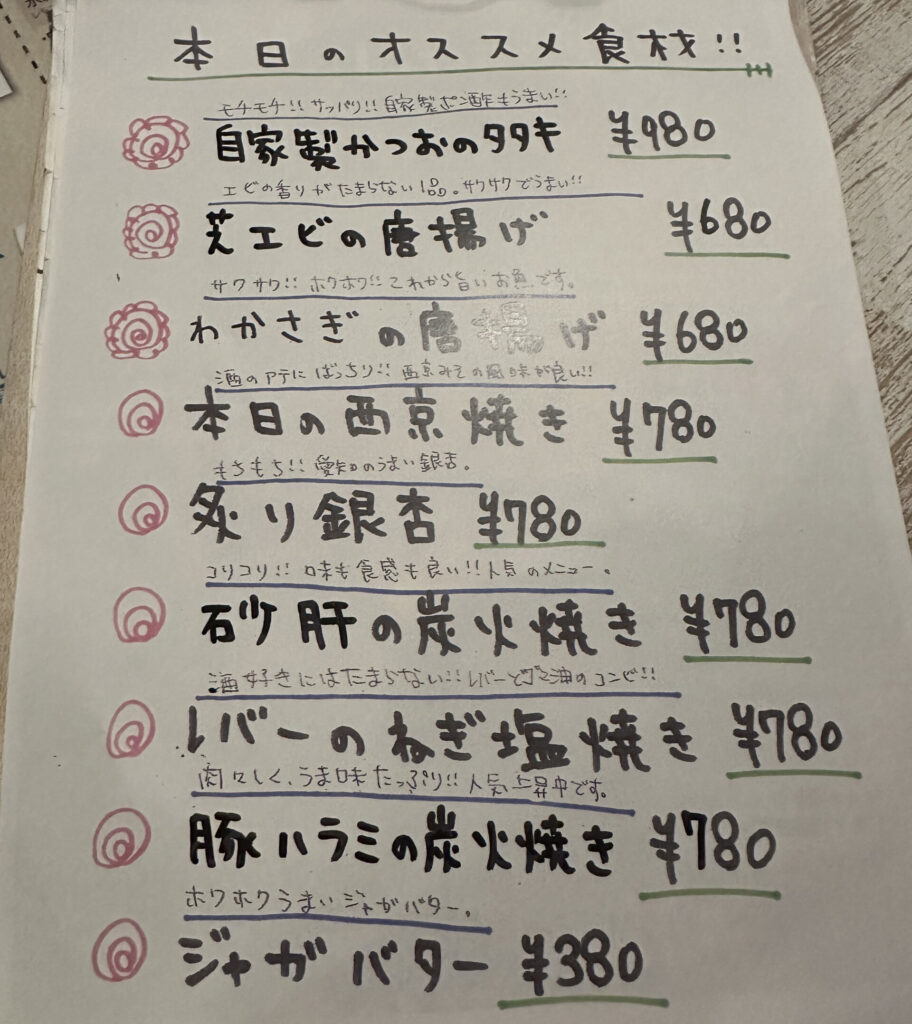 本日のオススメ食材!!
モチモチ!!サッパリ!!自家製ポン酢もうまい!!
自家製かつおのタタキ ¥980
エビの香りがたまらない1品。サクサクでうまい!!
芝エビの唐揚げ ¥680
サクサク!!ホクホク!!これから旨いお魚です。
わかさぎの唐揚げ ¥680
酒のアテにばっちり!!西京みその風味が良い!!
本日の西京焼き ¥780
もちもち!!愛知のうまい銀杏。
炙り銀杏 ¥780
コリコリ!!味も食感も良い!!人気のメニュー。
砂肝の炭火焼き ¥780
酒好きにはたまらない!!レバーとゴマ油のコンビ!!
レバーのねぎ塩焼き ¥780
肉々しく、うま味たっぷり!!人気上昇中です。
豚ハラミの炭火焼き ¥780
ホクホクうまいジャガバター。
ジャガバター ¥380